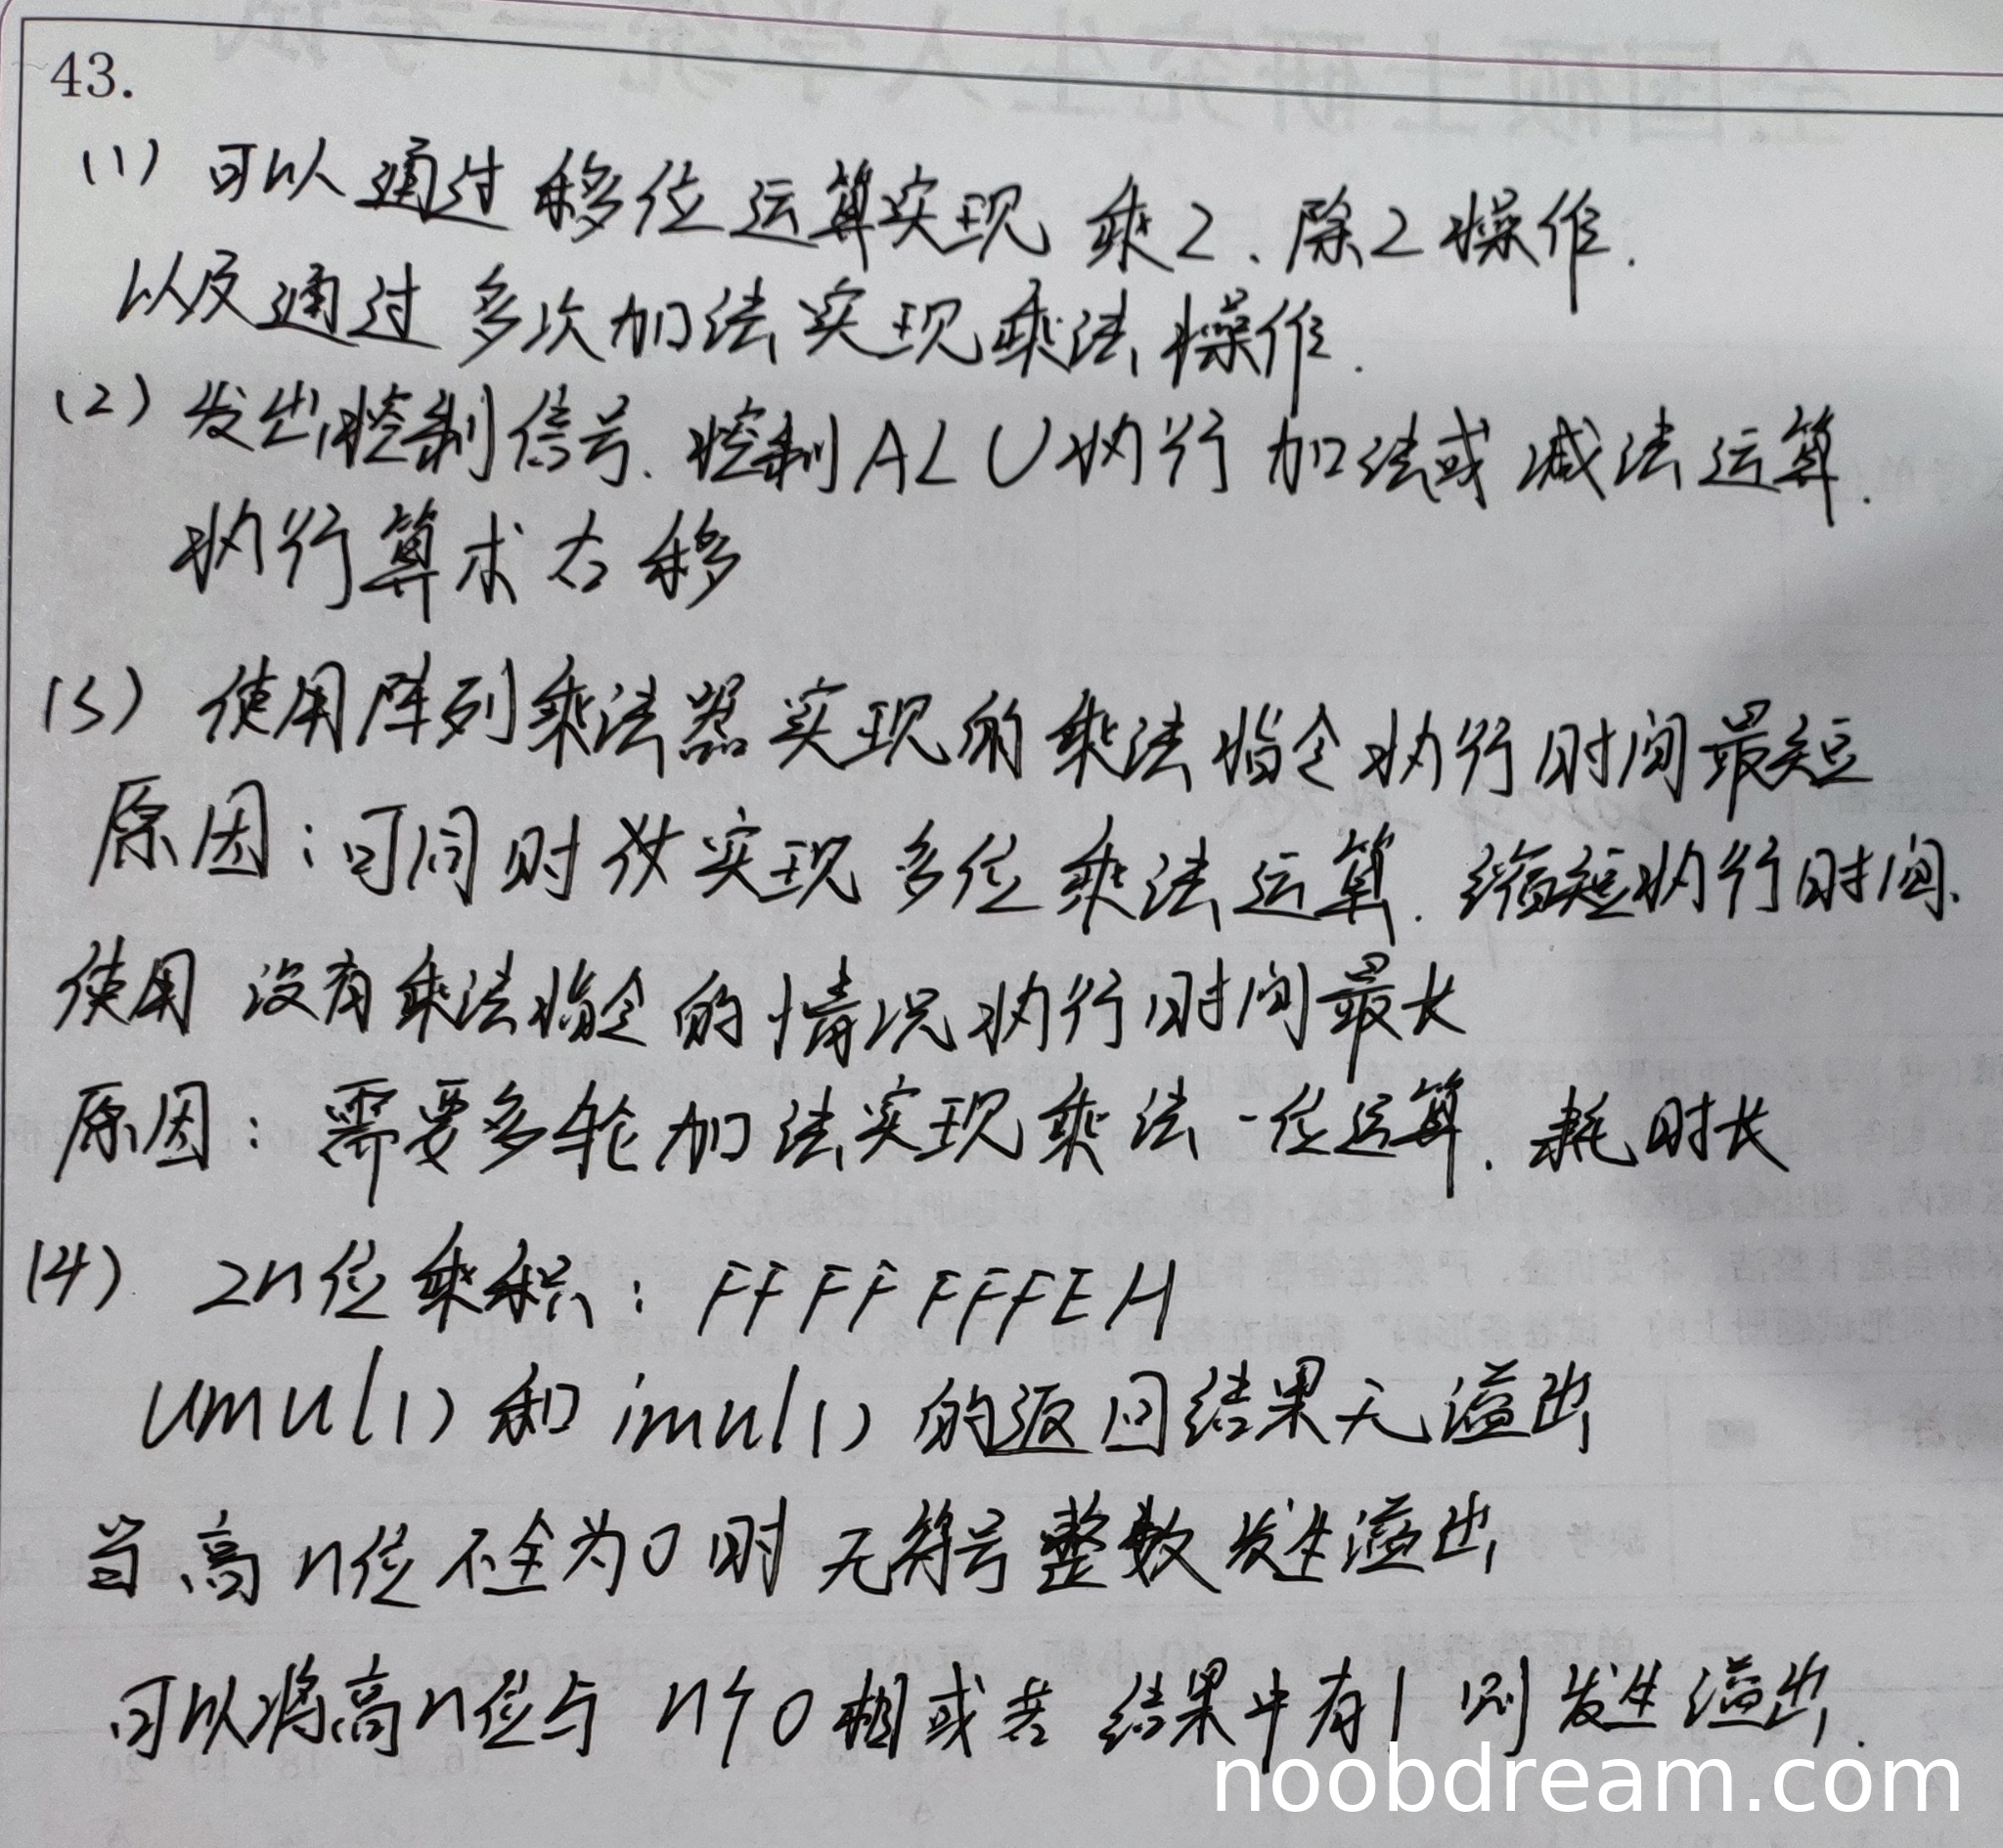 43.
(1) 可以通过移位运算实现 乘2、除2操作.
以及通过多次加法实现乘法操作.
(2) 发出控制信号. 控制ALU执行加法或减法运算.
执行算术右移
(3) 使用阵列乘法器实现的乘法指令执行时间最短
原因:可同时实现多位乘法运算. 缩短执行时间.
使用 没有乘法指令的情况执行时间最长
原因: 需要多轮加法实现乘法一位运算. 耗时长
(4) 2n位乘积: FFFF FFFEH
umul() 和 imul() 的返回结果无溢出
当高n位不全为0时 无符号整数发生溢出
可以将高n位与 n个0相或若 结果中有1 则发生溢出.
noobdream.com